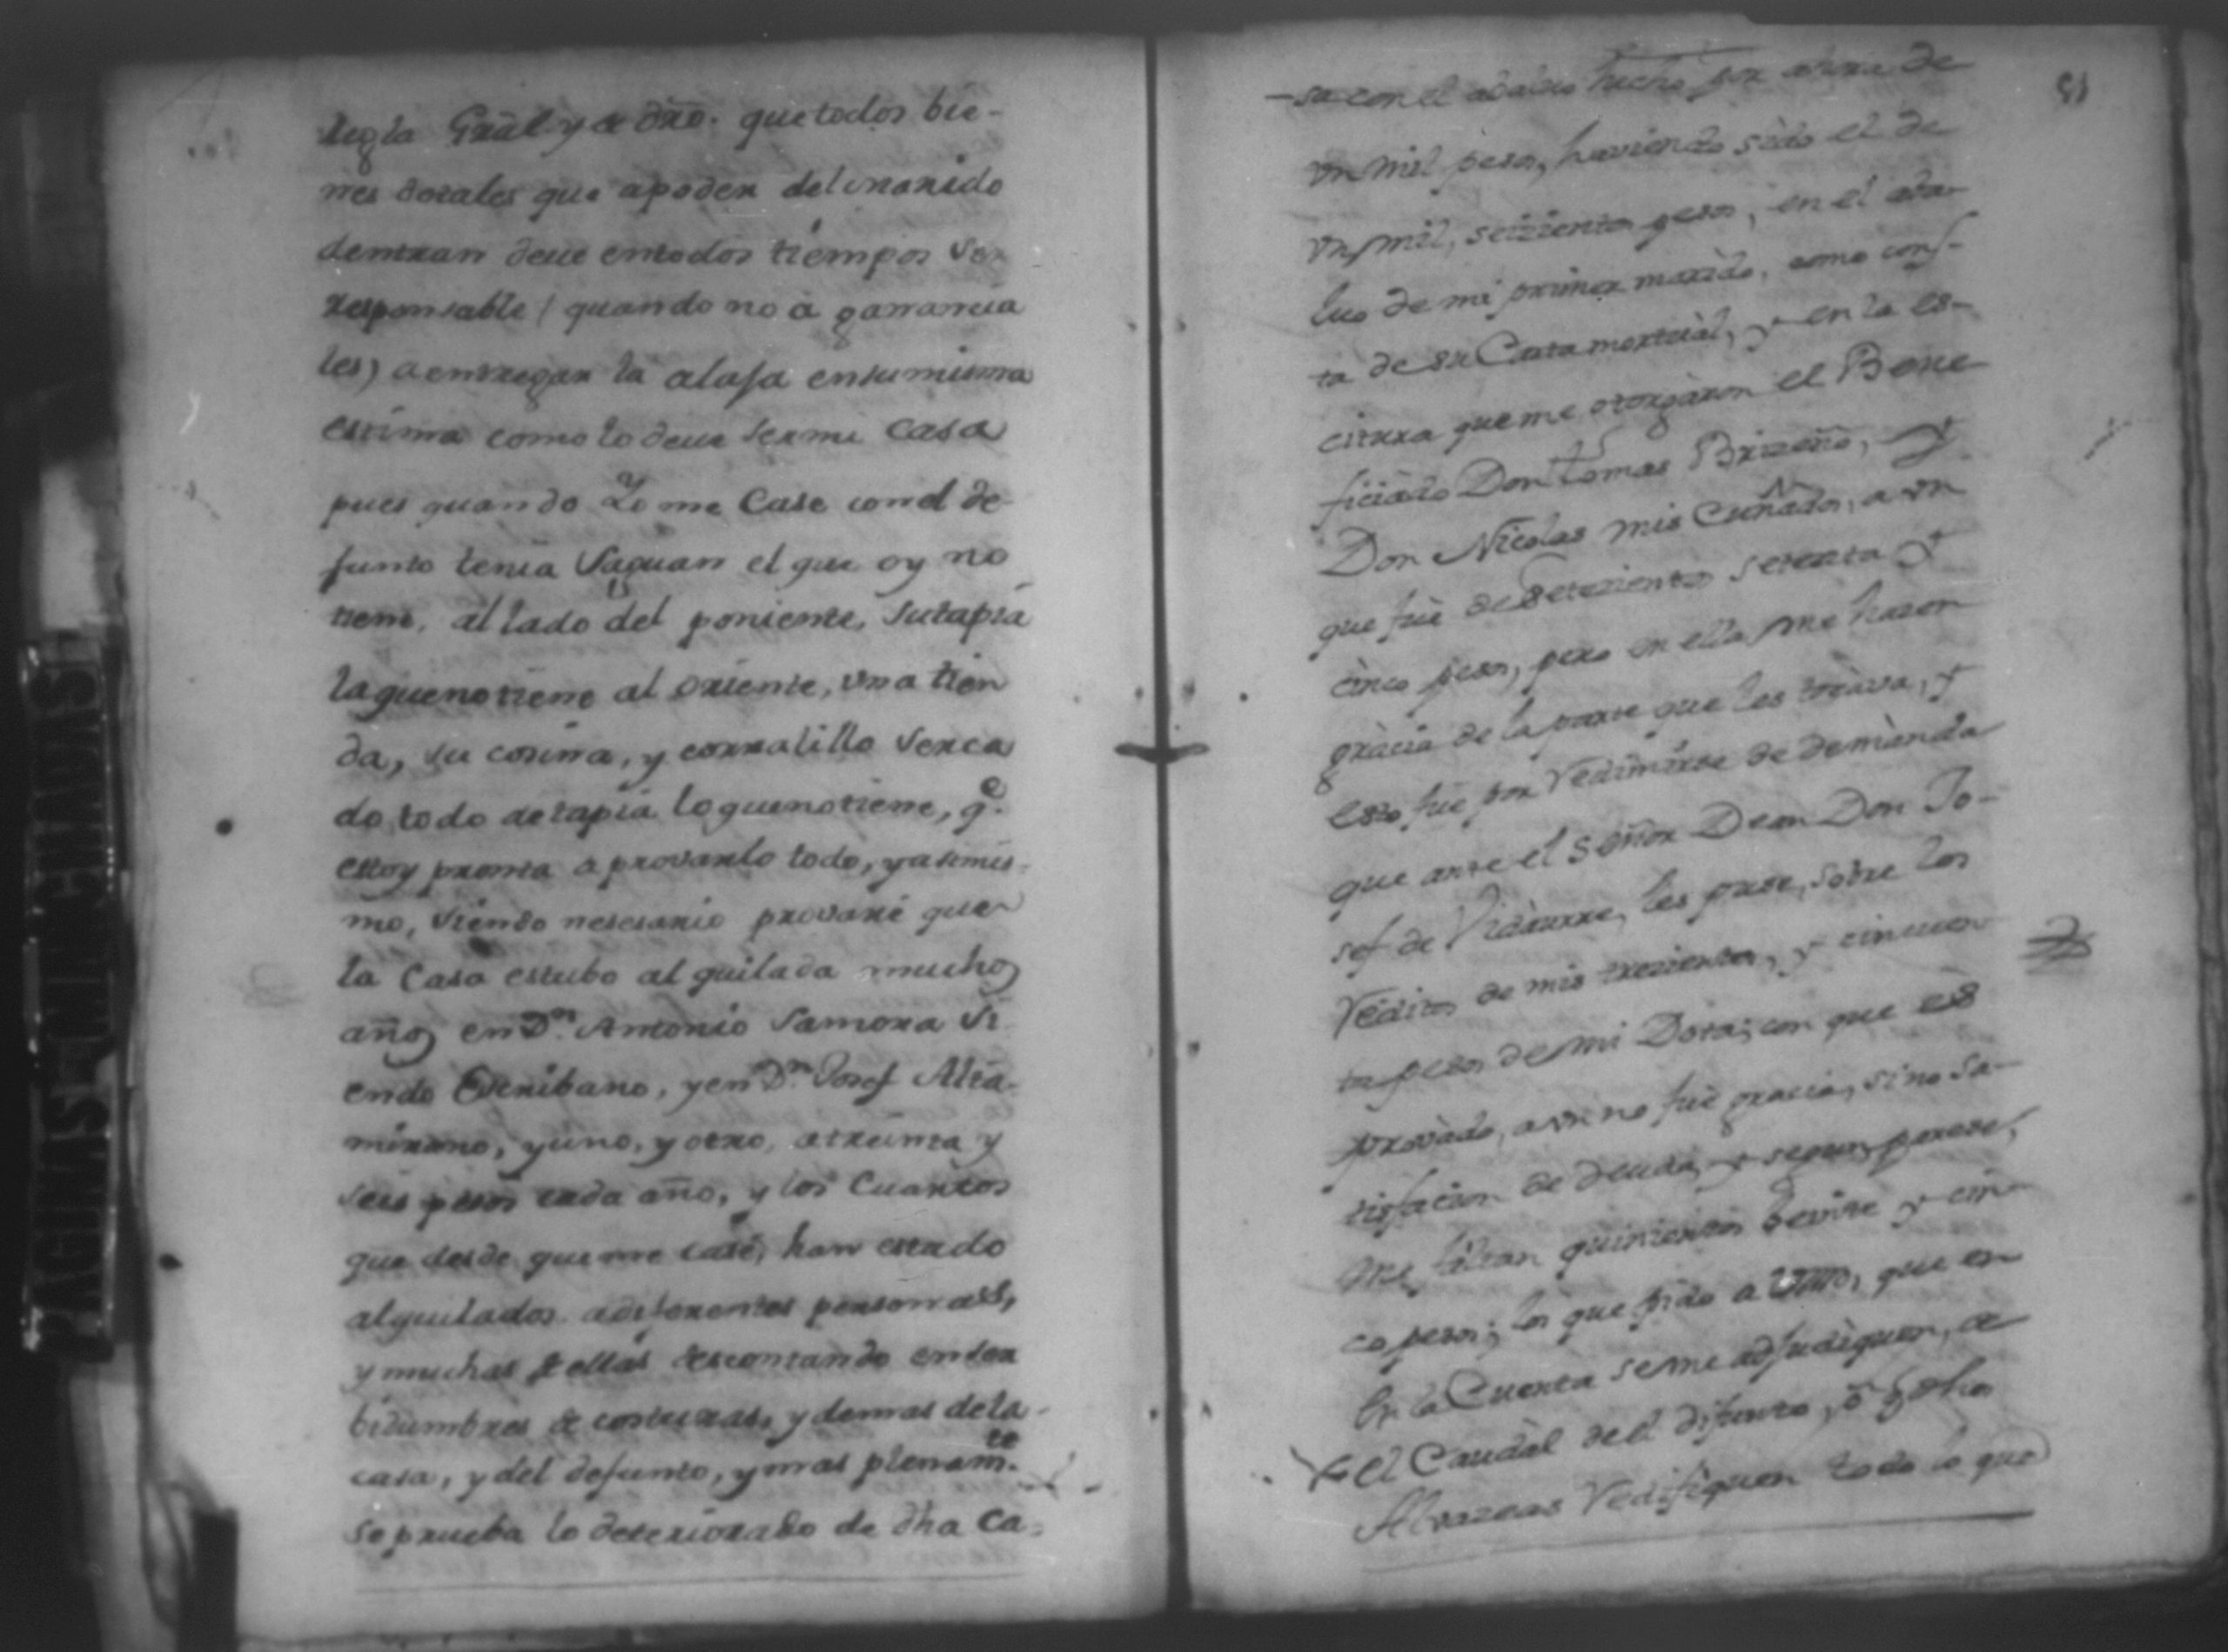 Regla Grâl y de dro. que todos bie-
nes dotales que a poder del marido
dentran deve en todos tiempos ser
responsable (quando no a ganancia
les) a entregar la alaja en su misma
estima como lo deve ser mi casa
pues quando Yo me Case con el de-
funto tenia Saguan el que oy no
tiene, al lado del poniente, su tapia
la que no tiene al oriente, una tien
da, su cosina, y corralillo serca
do todo de tapia lo que no tiene, qe.
estoy promta a provarlo todo, y asimis-
mo, siendo nesesario provaré que
la Casa estubo alquilada muchos
años en Dn. Antonio Samora si
endo Escribano, y en Dn. Josef Alta-
mirano, y uno, y otro, a treinta y
seis pesos cada año, y los Cuartos
que desde que me casé, han estado
alquilados a diferentes personas,
y muchas de ellas descontando en ser
bidumbres de costuras, y demas de la
casa, y del defunto, y mas plenamte.
se prueba lo deteriorado de dha Ca-
51
-sa con el abaluo hecho por ahora de
un mil pesos, haviendo sido el de
un mil, seizientos pesos, en el aba-
luo de mi primer marido, como cons-
ta de su Carta mortual, y en la es-
critura que me otorgaron el Bene
ficiado Don Tomas Brizeño, y
Don Nicolas mis Cuñados, aun
que fue de setezientos setenta y
cinco pesos, pero en ella me hazen
gracia de la parte que les tocava, y
esto fue por redimirse de demanda
que ante el Señor Dean Don Jo-
sef de Vidaurre, les puse, sobre los
reditos de mis trezientos, y cincuen
ta pesos de mi Dote; con que es
provado, aun no fue gracia, sino sa-
tisfacion de deuda, y segun parese,
me faltan quinientos veinte y cin-
co pesos; los que pido a Vmd, que en
la Cuenta se me adjudiquen, de
el Caudal del difunto, ô
Alvazeas redifiquen todo lo que